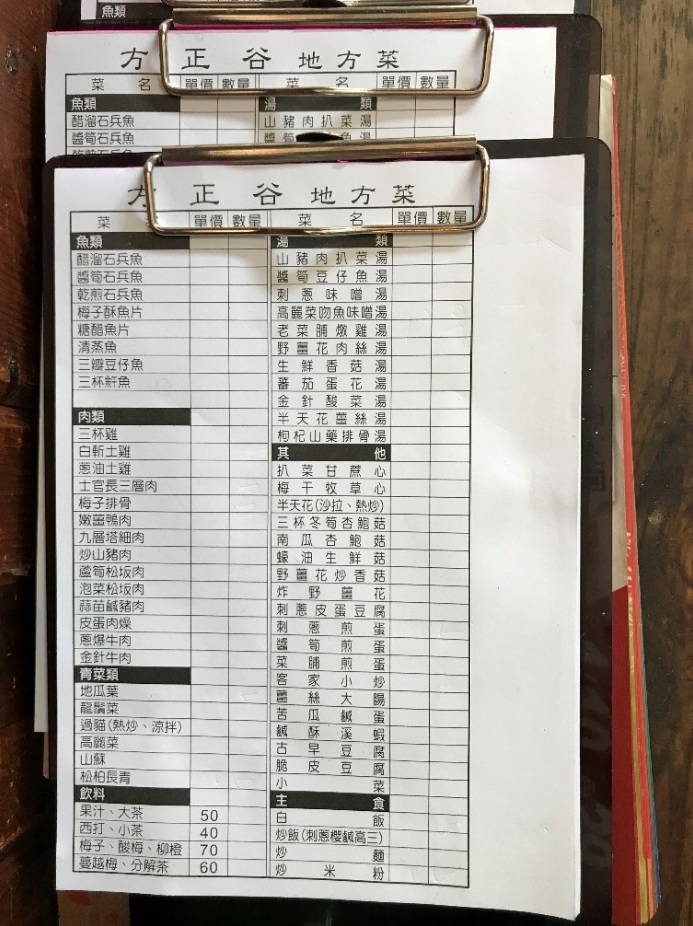 魚類
方正谷地方菜
菜名 單價 數量 菜名 單價 數量
魚類 湯類
醋溜石兵魚 山豬肉扒菜湯
醬筍石兵魚
方正谷地方菜
菜 單價 數量 菜名 單價 數量
魚類
醋溜石兵魚
醬筍石兵魚
乾煎石兵魚
梅子酥魚片
糖醋魚片
清蒸魚
三瓣豆仔魚
三杯魽魚
肉類
三杯雞
白斬土雞
蔥油土雞
士官長三層肉
梅子排骨
嫩薑鴨肉
九層塔細肉
炒山豬肉
蘆筍松坂肉
泡菜松坂肉
蒜苗鹹豬肉
皮蛋肉燥
蔥爆牛肉
金針牛肉
青菜類
地瓜葉
龍鬚菜
過貓(熱炒、涼拌)
高麗菜
山蘇
松柏長青
飲料
果汁、大茶 50
西打、小茶 40
梅子、酸梅、柳橙 70
蔓越梅、分解茶 60
湯類
山豬肉扒菜湯
醬筍豆仔魚湯
刺蔥味噌湯
高麗菜吻魚味噌湯
老菜脯燉雞湯
野薑花肉絲湯
生鮮香菇湯
蕃茄蛋花湯
金針酸菜湯
半天花薑絲湯
枸杞山藥排骨湯
其他
扒菜甘蔗心
梅干牧草心
半天花(沙拉、熱炒)
三杯冬筍杏鮑菇
南瓜杏鮑菇
蠔油生鮮菇
野薑花炒香菇
炸野薑花
刺蔥皮蛋豆腐
刺蔥煎蛋
醬筍煎蛋
菜脯煎蛋
客家小炒
薑絲大腸
苦瓜鹹蛋
鹹酥溪蝦
古早豆腐
脆皮豆腐
小菜
主食
白飯
炒飯(刺蔥櫻鹹高三)
炒麵
炒米粉